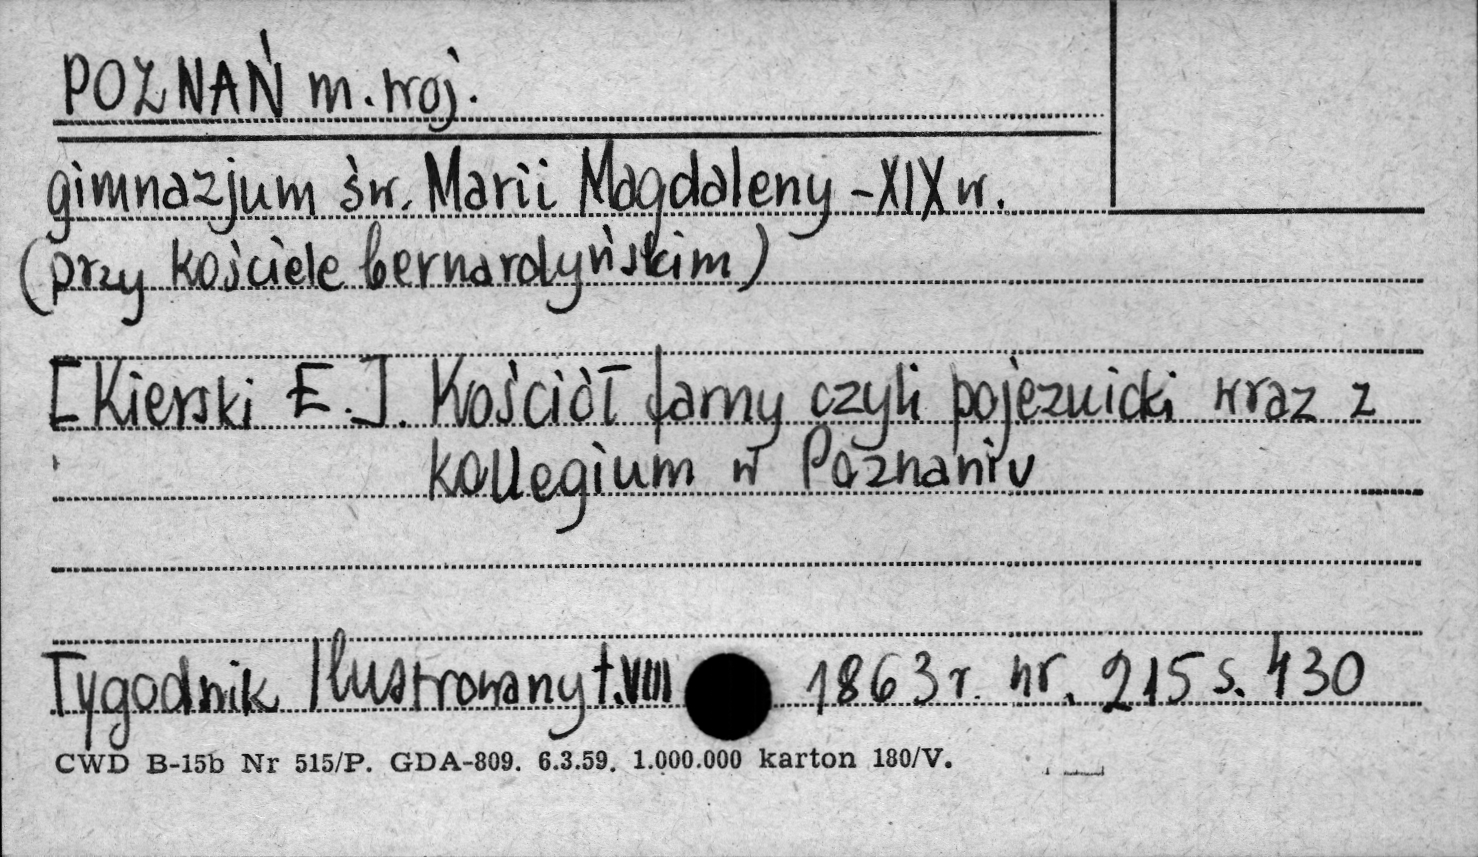 POZNAŃ m. woj.
gimnazjum św. Marii Magdaleny - XIX w.
(przy kościele bernardyńskim)
[Kierski E.]. Kościół farny czyli pojezuicki wraz z
kollegium w Poznaniu
Tygodnik Ilustrowany t. VIII 1863 r. nr. 215 s. 430
CWD B-15b Nr 515/P. GDA-809. 6.3.59. 1.000.000 karton 180/V.